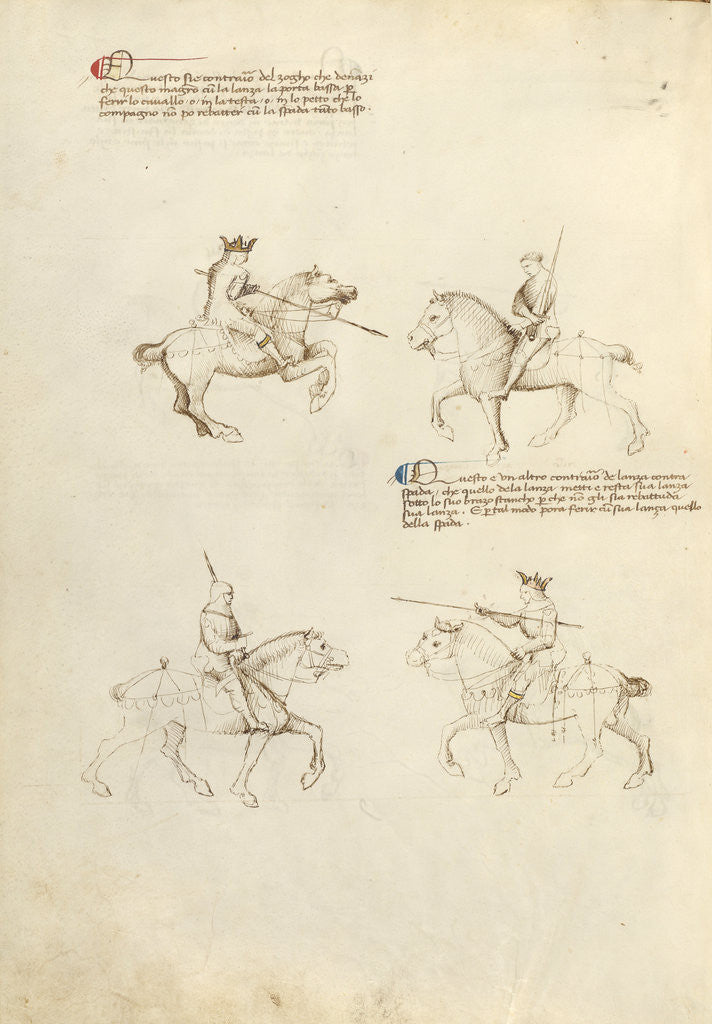 Questo sie contrario del zogho che denazi
che questo magistro cu la lanza la porta bassa p
ferir lo cavallo / o / in la testa / o / in lo petto che lo
compagno no po rebatter cu la spada tanto basso.
Questo e un altro contrario de lanza contra
spada / che quello dela lanza metti e resta sua lanza
sotto lo suo brazo stancho p che no gli sia rebattuda
sua lanza. E p tal modo pora ferir cu sua lança quello
della spada.